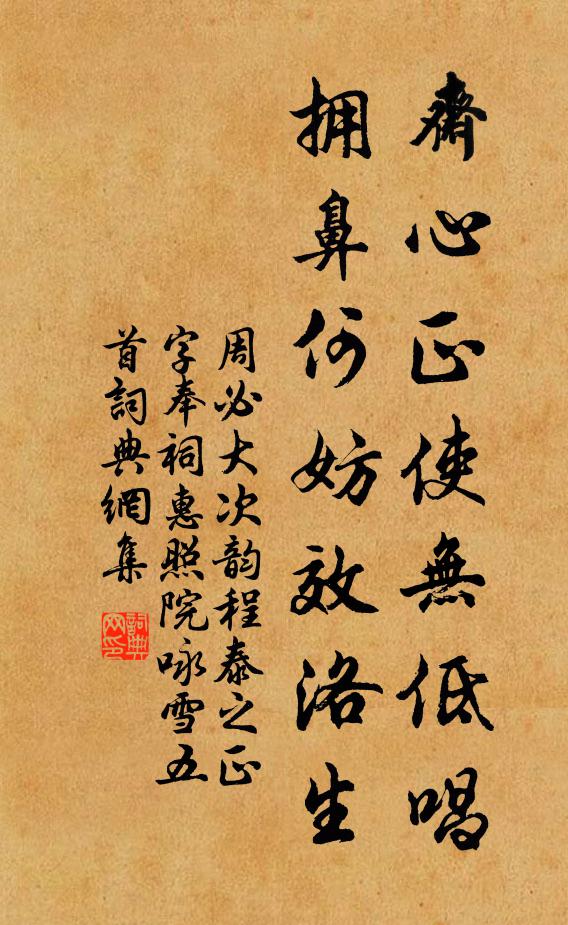 齋心正使無低唱
擁鼻何妨效洛生
周必大次韵程泰之正
字奉祠惠照院咏雪五
首詞典網集
詞典
网印